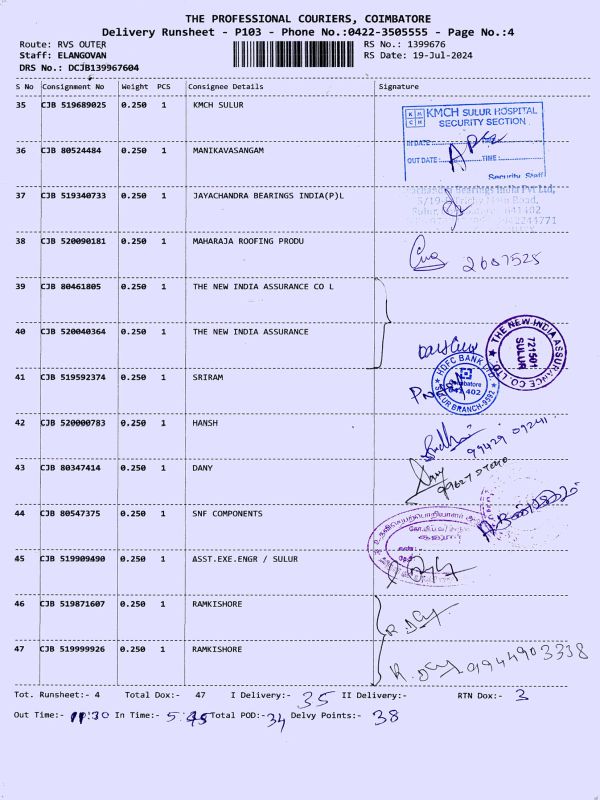 THE PROFESSIONAL COURIERS, COIMBATORE
Delivery Runsheet - P103 - Phone No.:0422-3505555 - Page No.:4
Route: RVS OUTER RS No.: 1399676
Staff: ELANGOVAN RS Date: 19-Jul-2024
DRS No.: DCJB139967604
S No Consignment No Weight PCS Consignee Details Signature
35 CJB 519689025 0.250 1 KMCH SULUR
KMCH SULUR HOSPITAL
SECURITY SECTION
IN DATE: TIME:
OUT DATE: TIME:
Security Staff
36 CJB 80524484 0.250 1 MANIKAVASANGAM
37 CJB 519340733 0.250 1 JAYACHANDRA BEARINGS INDIA(P)L
Bearings India Pvt Ltd,
38 CJB 520090181 0.250 1 MAHARAJA ROOFING PRODU
2687525
39 CJB 80461805 0.250 1 THE NEW INDIA ASSURANCE CO L
40 CJB 520040364 0.250 1 THE NEW INDIA ASSURANCE
THE NEW INDIA ASSURANCE CO. LTD.
721501
SULUR
41 CJB 519592374 0.250 1 SRIRAM
HDFC BANK LTD.
SULUR BRANCH-9592
42 CJB 520000783 0.250 1 HANSH
43 CJB 80347414 0.250 1 DANY
Dany
44 CJB 80547375 0.250 1 SNF COMPONENTS
45 CJB 519909490 0.250 1 ASST.EXE.ENGR / SULUR
46 CJB 519871607 0.250 1 RAMKISHORE
47 CJB 519999926 0.250 1 RAMKISHORE
9944903338
Tot. Runsheet:- 4 Total Dox:- 47 I Delivery:- 35 II Delivery:- RTN Dox:- 3
Out Time:- 11:30 In Time:- 5:45 Total POD:- 34 Delvy Points:- 38